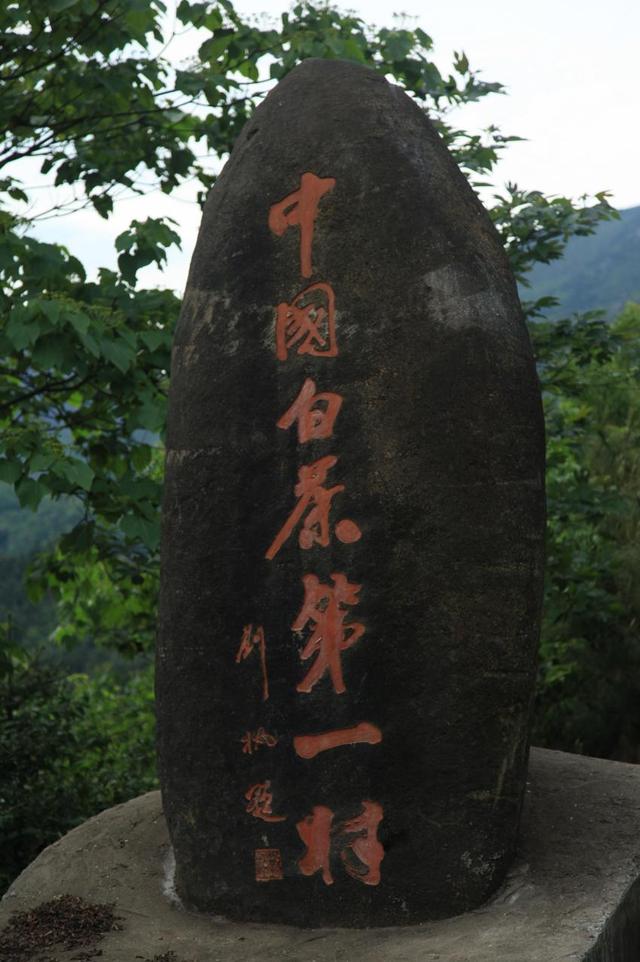 中國白茶第一村
刘枫题